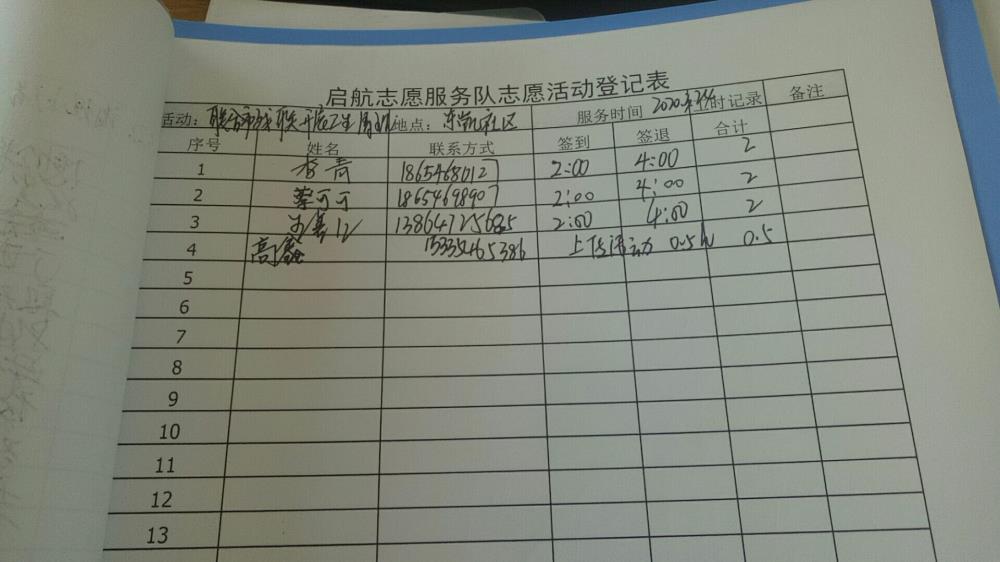 启航志愿服务队志愿活动登记表
活动: 联合市残联开展卫生 地点: 东凯社区 服务时间 2020 时记录 备注
序号 姓名 联系方式 签到 签退 合计
1 李青 18654680127 2:00 4:00 2
2 蔡可可 18654698907 2:00 4:00 2
3 13864725685 2:00 4:00 2
4 高鑫 15335465386 上传活动 0.5h 0.5
5
6
7
8
9
10
11
12
13